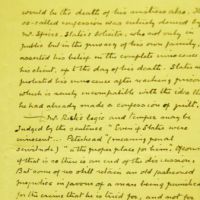 would be the death of his ambitions also. The
so-called confession was entirely denied by
Mr Spiers, Slater's Solicitor, who not only in
public but in the privacy of his own family,
asserted his belief in the complete innocence
his client, up to the day of his death. Slater
protested his innocence after reaching prison
which is surely incompatible with the idea th
he had already made a confession of guilt.
Mr Rider's logic and temper may be
Judged by the sentence "Even if Slater were
innocent... Peterhead (meaning penal
servitude) is the proper place for him". Of course
if that is so there is an end of the discussion.
But some of us still retain an old fashioned
prejudice in favour of a man being punished
for the crime that he is tried for, and not for